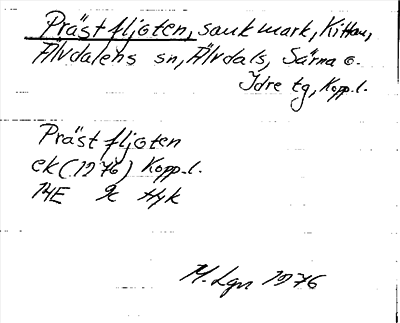 Prästfljoten, sank mark, Kittan,
Älvdalens sn, Älvdals, Särna o.
Idre tg, Kopp.l.
Prästfljoten
ek (1976) Kopp.l.
14E Hyk
M. Lgn 1976